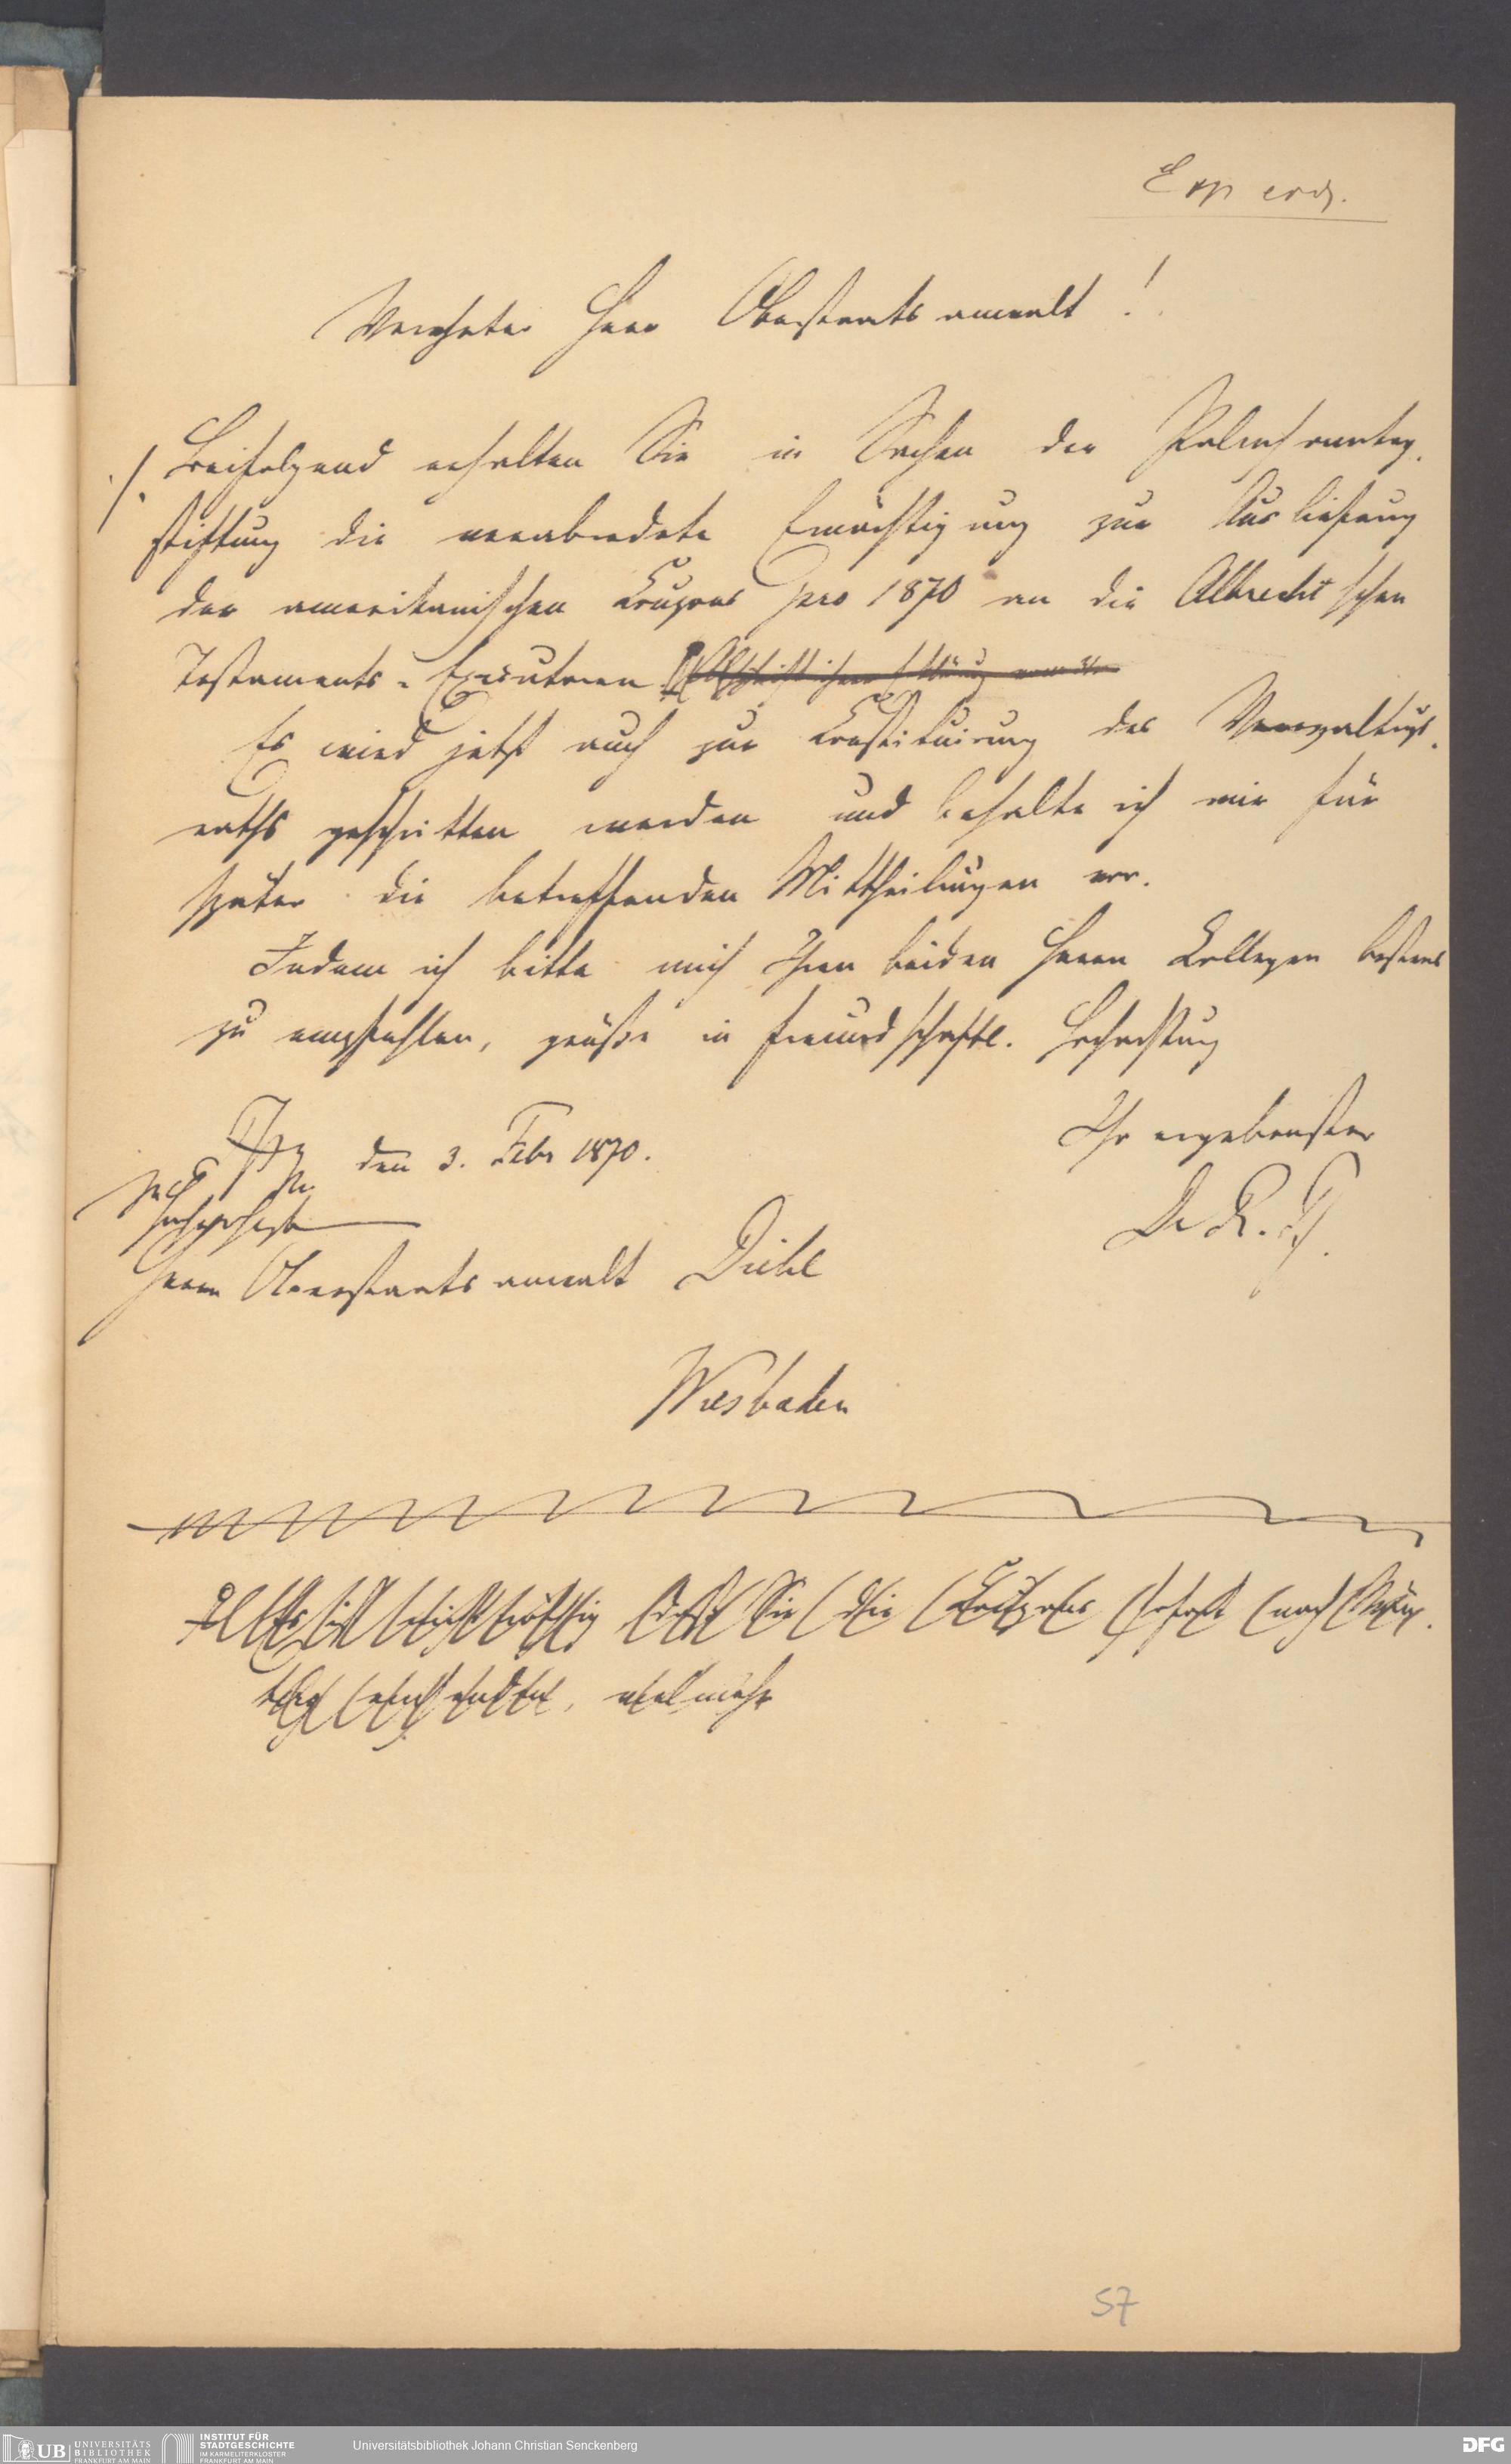 Exp eod.
Verehrter Herr Oberstaatsanwalt!
./. Beifolgend erhalten Sie in Sachen der Palmsonntag-
stiftung die verabredete Ermächtigung zur Auslieferung
der amerikanischen Coupons pro 1870 an die Albrecht'schen
Testaments-Executoren
Es wird jetzt auch zur Constituirung des Verwaltungs-
raths geschritten werden und behalte ich mir für
später die betreffenden Mittheilungen vor.
Indem ich bitte mich Ihren beiden Herrn Collegen bestens
zu empfehlen, grüße in freundschaftl. Hochachtung
Ihr ergebenster
den 3. Febr 1870.
Dr
Herrn Oberstaatsanwalt Diehl
Wiesbaden
Es ist nicht nöthig daß Sie die Coupons sofort nach
einsenden, vielmehr
57
UB UNIVERSITÄTS
BIBLIOTHEK
FRANKFURT AM MAIN
INSTITUT FÜR
STADTGESCHICHTE
IM KARMELITERKLOSTER
FRANKFURT AM MAIN
Universitätsbibliothek Johann Christian Senckenberg
DFG